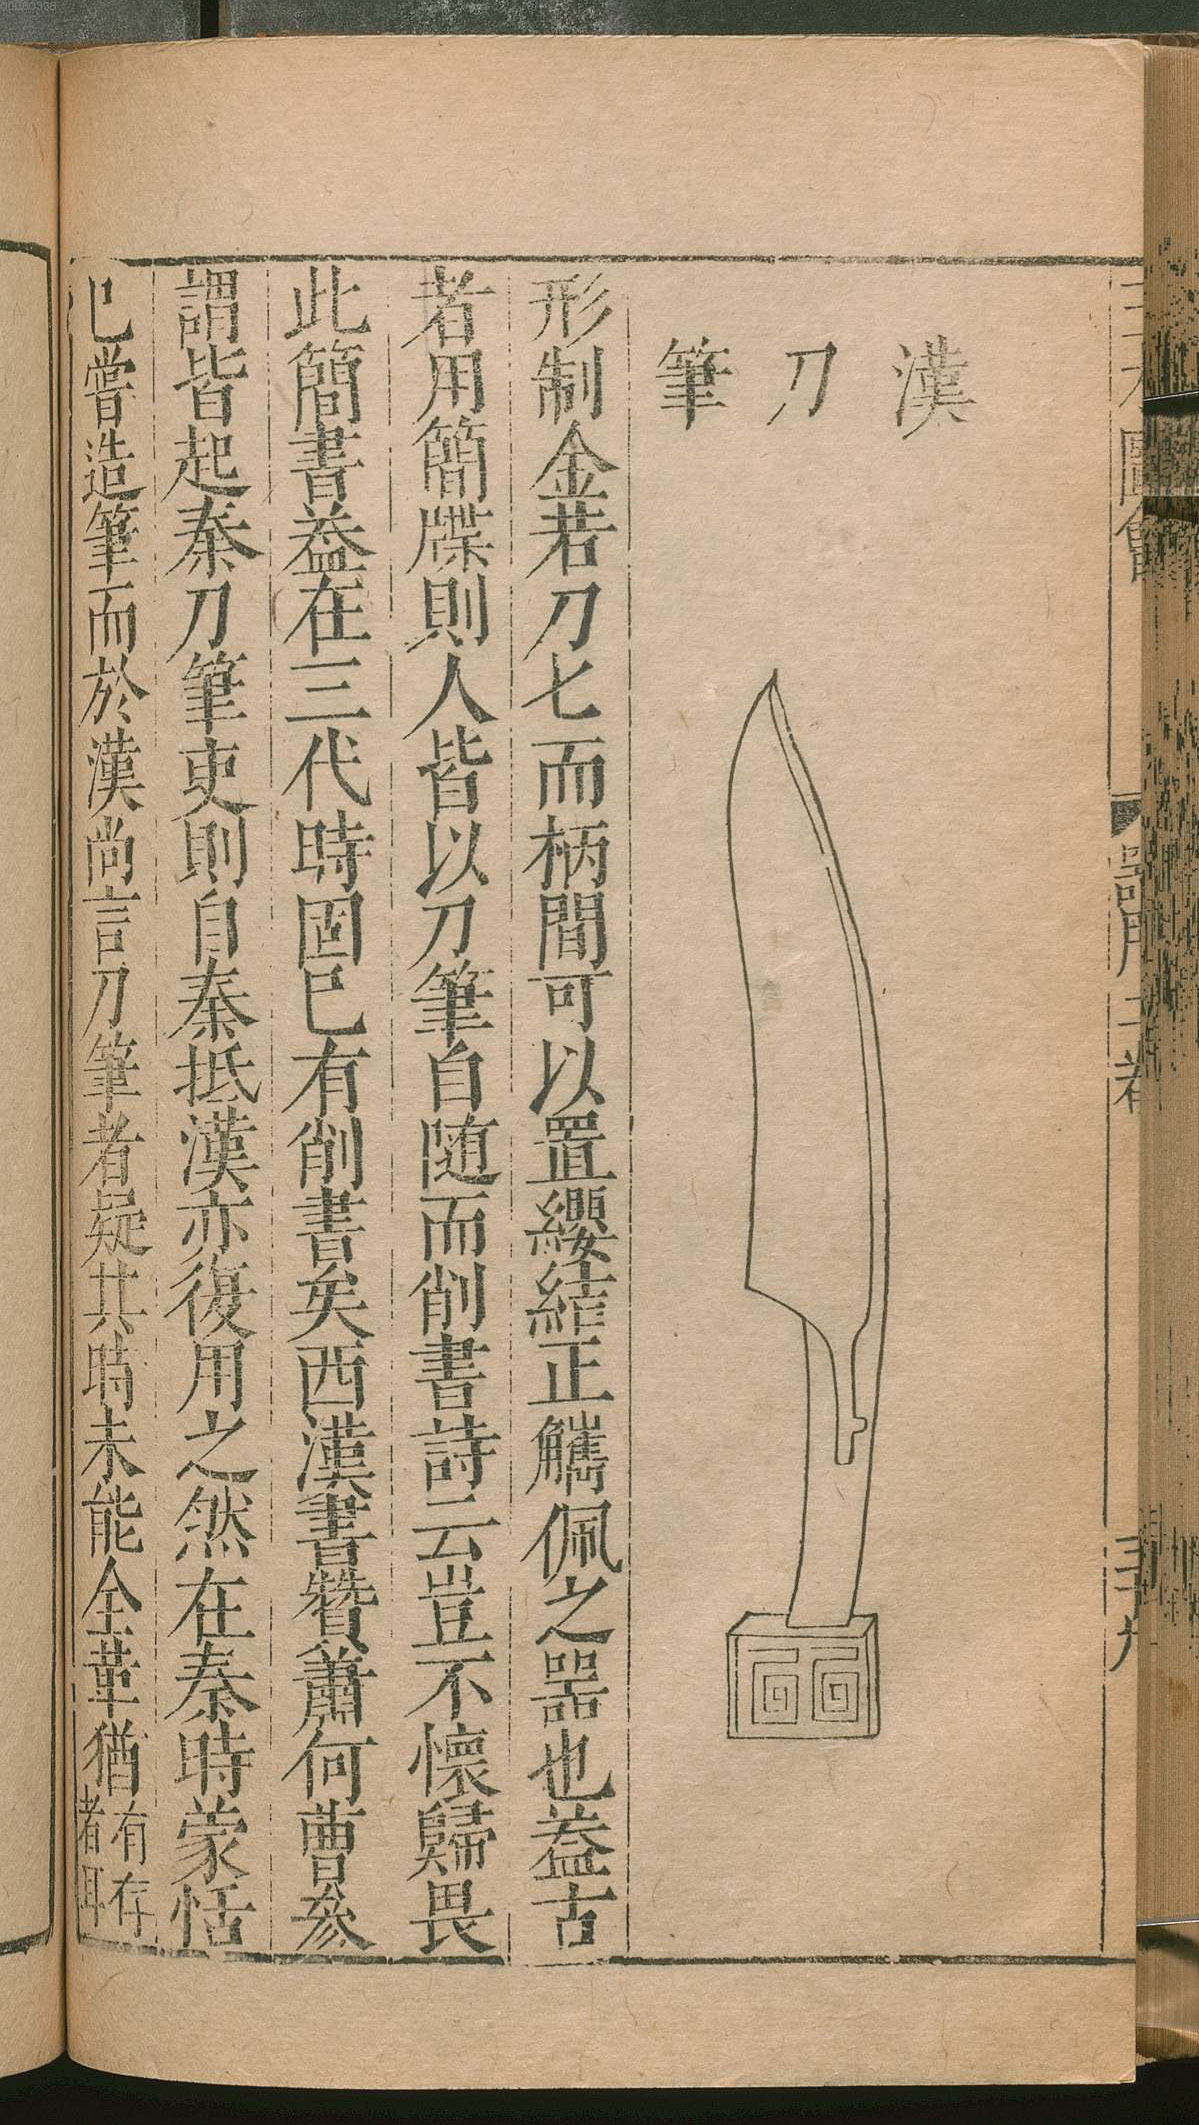 漢刀筆
形制金若刀匕而柄間可以置纓結正觿佩之器也葢古
者用簡牒則人皆以刀筆自随而削書詩云豈不懷歸畏
此簡書葢在三代時固已有削書矣西漢書贊蕭何曹參
謂皆起秦刀筆吏則自秦抵漢亦復用之然在秦時蒙恬
已嘗造筆而於漢尚言刀筆者疑其時未能全革猶有存
者耳